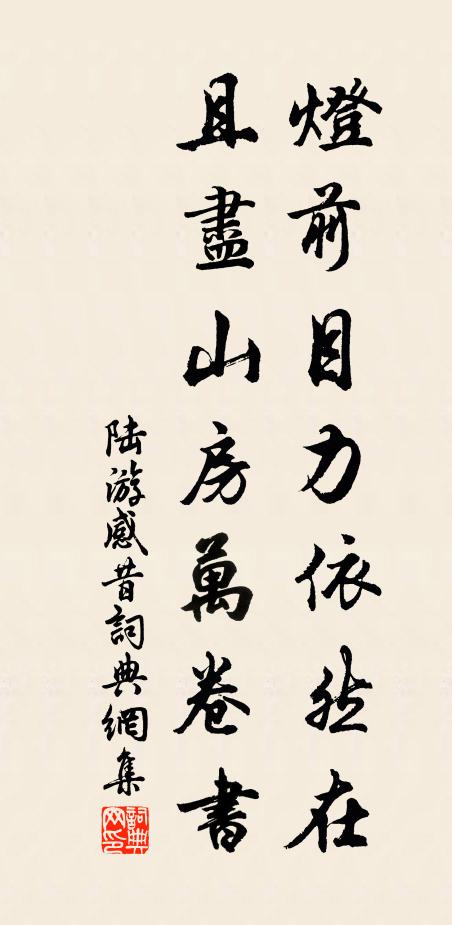 燈前目力依然在
且盡山房萬卷書
陸游感昔詞典網集
詞典网印